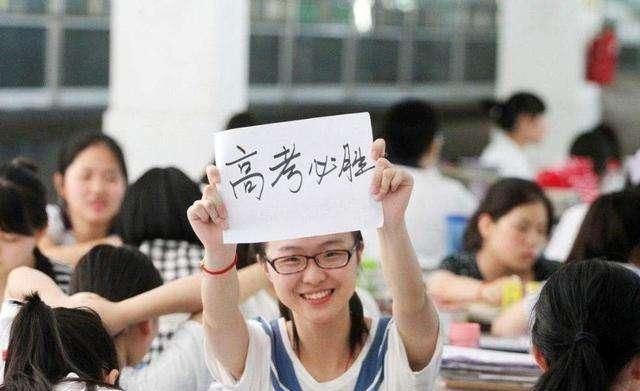 高考必胜